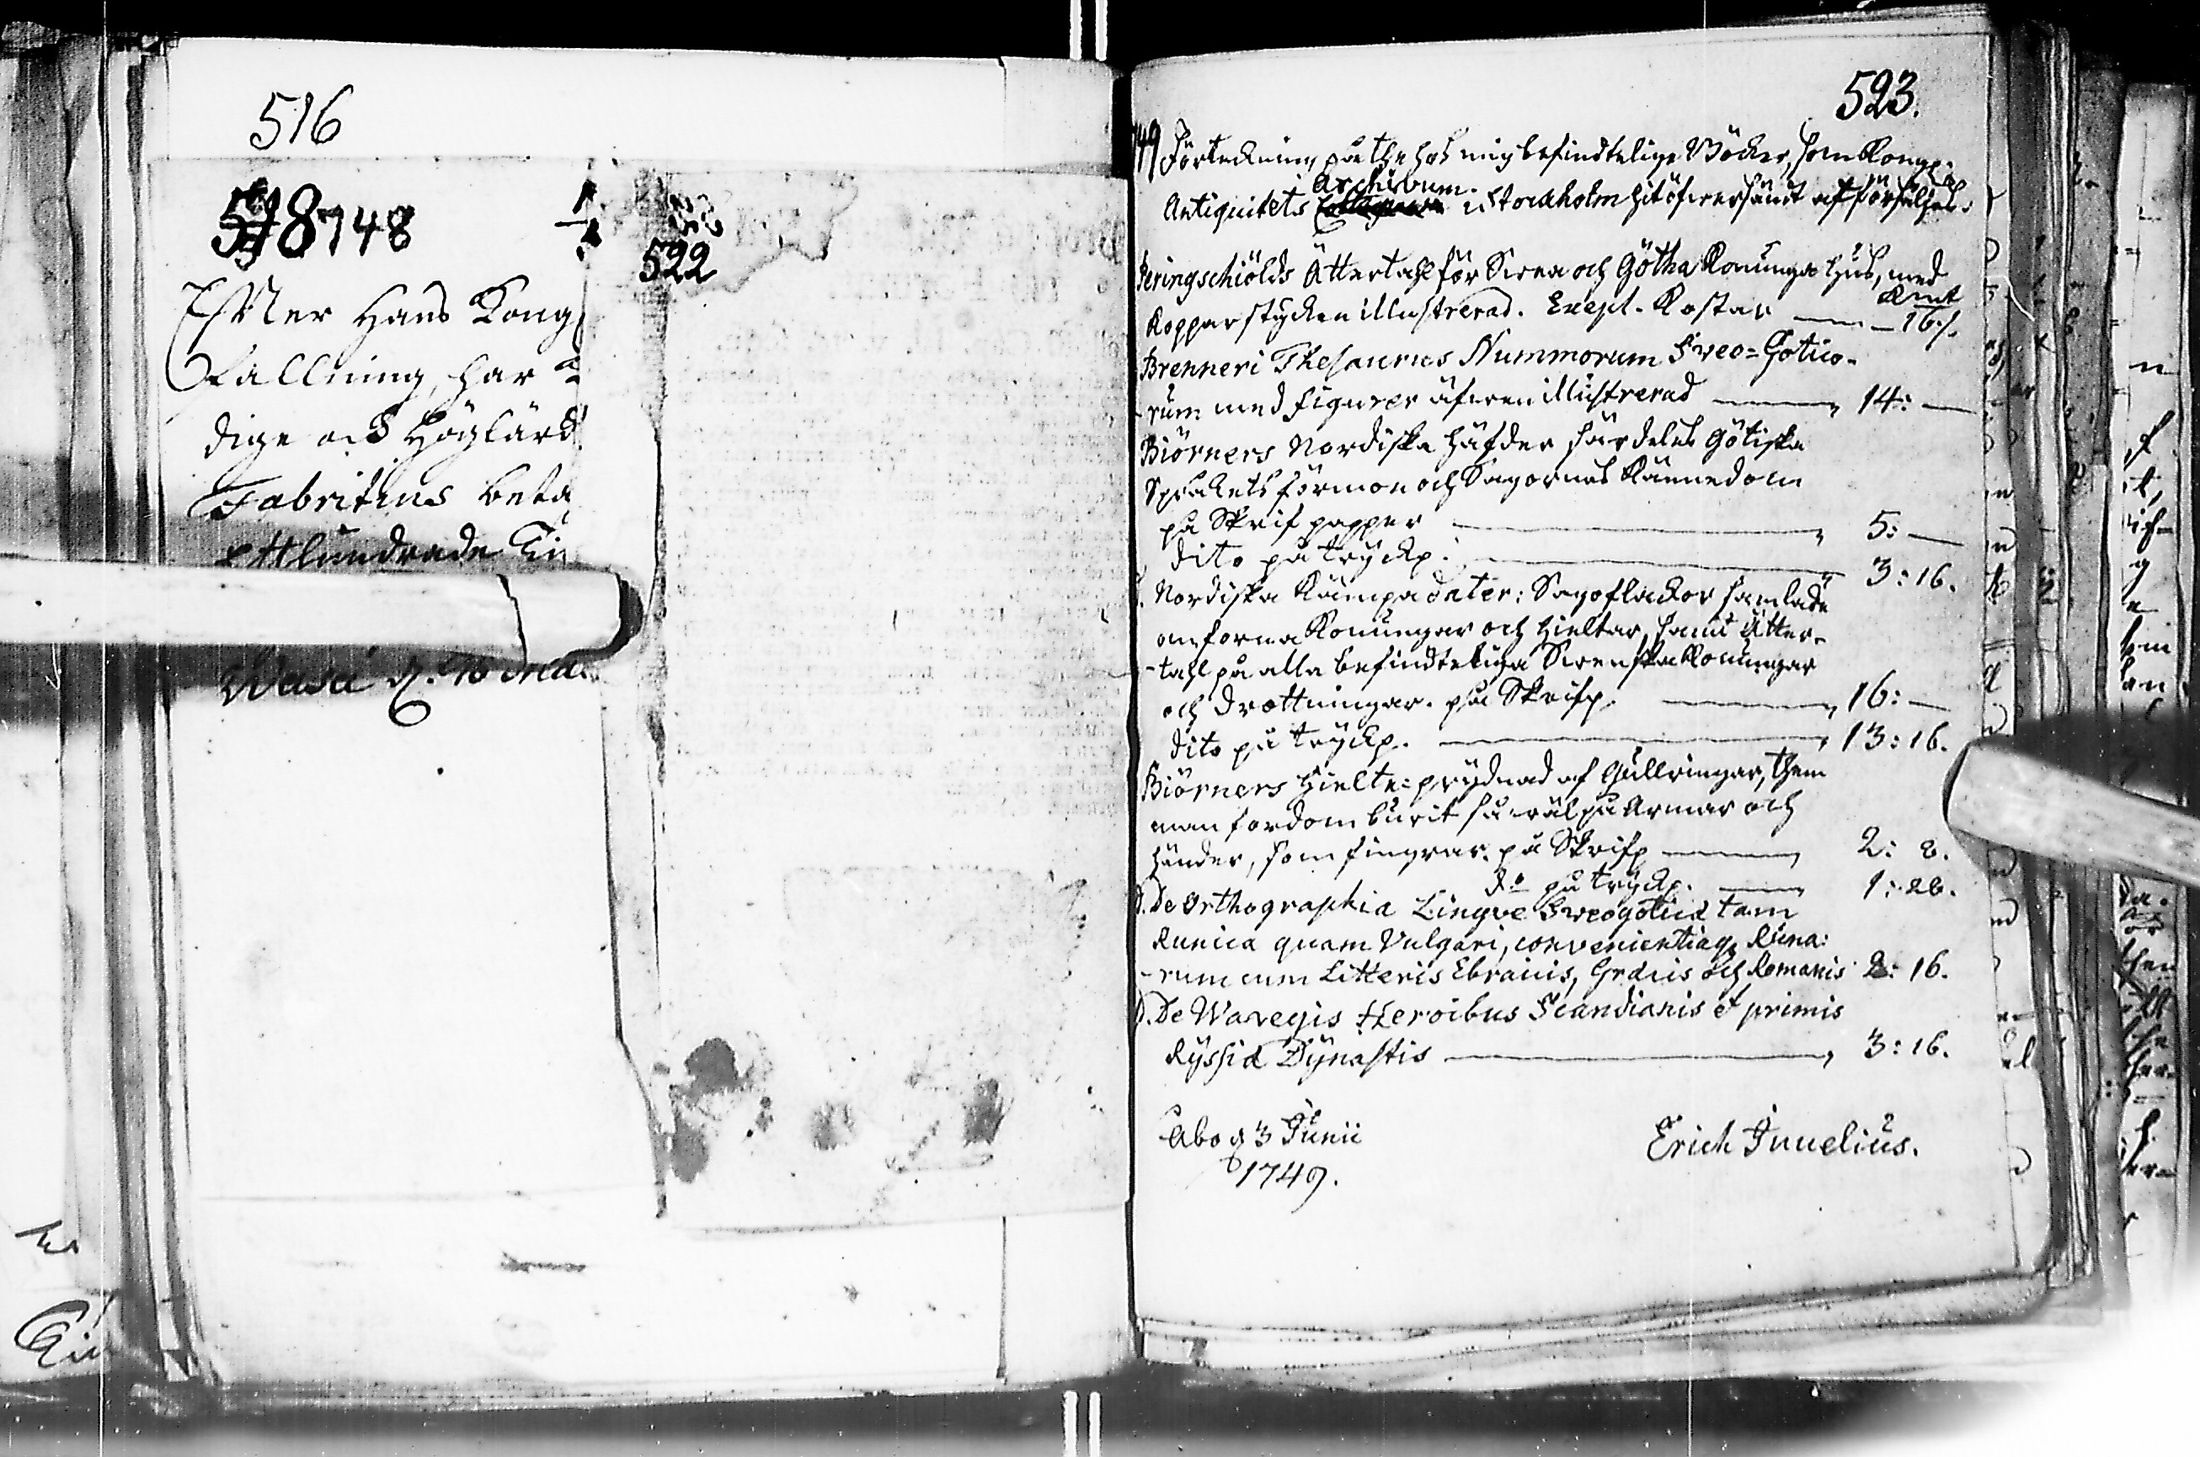 516
518 748
522
Effter Hans Kong
Kallning, har
dige och Höglärd
Fabritius beta
Etthundrade
Wasa d. 10
523.
749 Förteckning på the hos mig befindtelige Böcker, som Kongl.
Archivum.
Antiquitets Collegium i Stockholm hitöfwersändt at försäljas.
Peringschiölds Ättertahl för Swea och Götha Konunga Hus, med
Kmt
Kopparstycken illustrerad. Exepl. Kostar — 16:/.
Brenneri Thesaurus Nummorum Sveo-Gotico-
-rum med figurer äfwen illustrerad — 14: —
Biörners Nordiska häfder särdeles Götiska
Språkets förmon och Sagornas Kännedom
på Skrifpapper — 5: —
Dito på tryckp. — 3: 16.
D. Nordiska Kämpadater: Sagoflåckor samlade
om forna Konungar och hieltar, samt Ätter-
-tahl på alla befindteliga Swenska Konungar
och Drottningar. på Skrifp. — 16: —
Dito på tryckp. — 13: 16.
Biörners Hielte-prydnad af Gullringar, them
man fordom burit så wäl på Armar och
händer, som fingrar. på Skrifp — 2: 8.
Do på tryckp. — 1: 26.
D. De Orthographia Lingvæ Sveogoticæ tam
Runica quam Vulgari, convenientiaq Runa:
-rum cum Litteris Ebraicis, Græcis och Romanis 2: 16.
D. De Waregis Heroibus Scandianis et primis
Ryssiæ Dynastis — 3: 16.
Åbo d 3 Junii
1749.
Erich Juvelius.